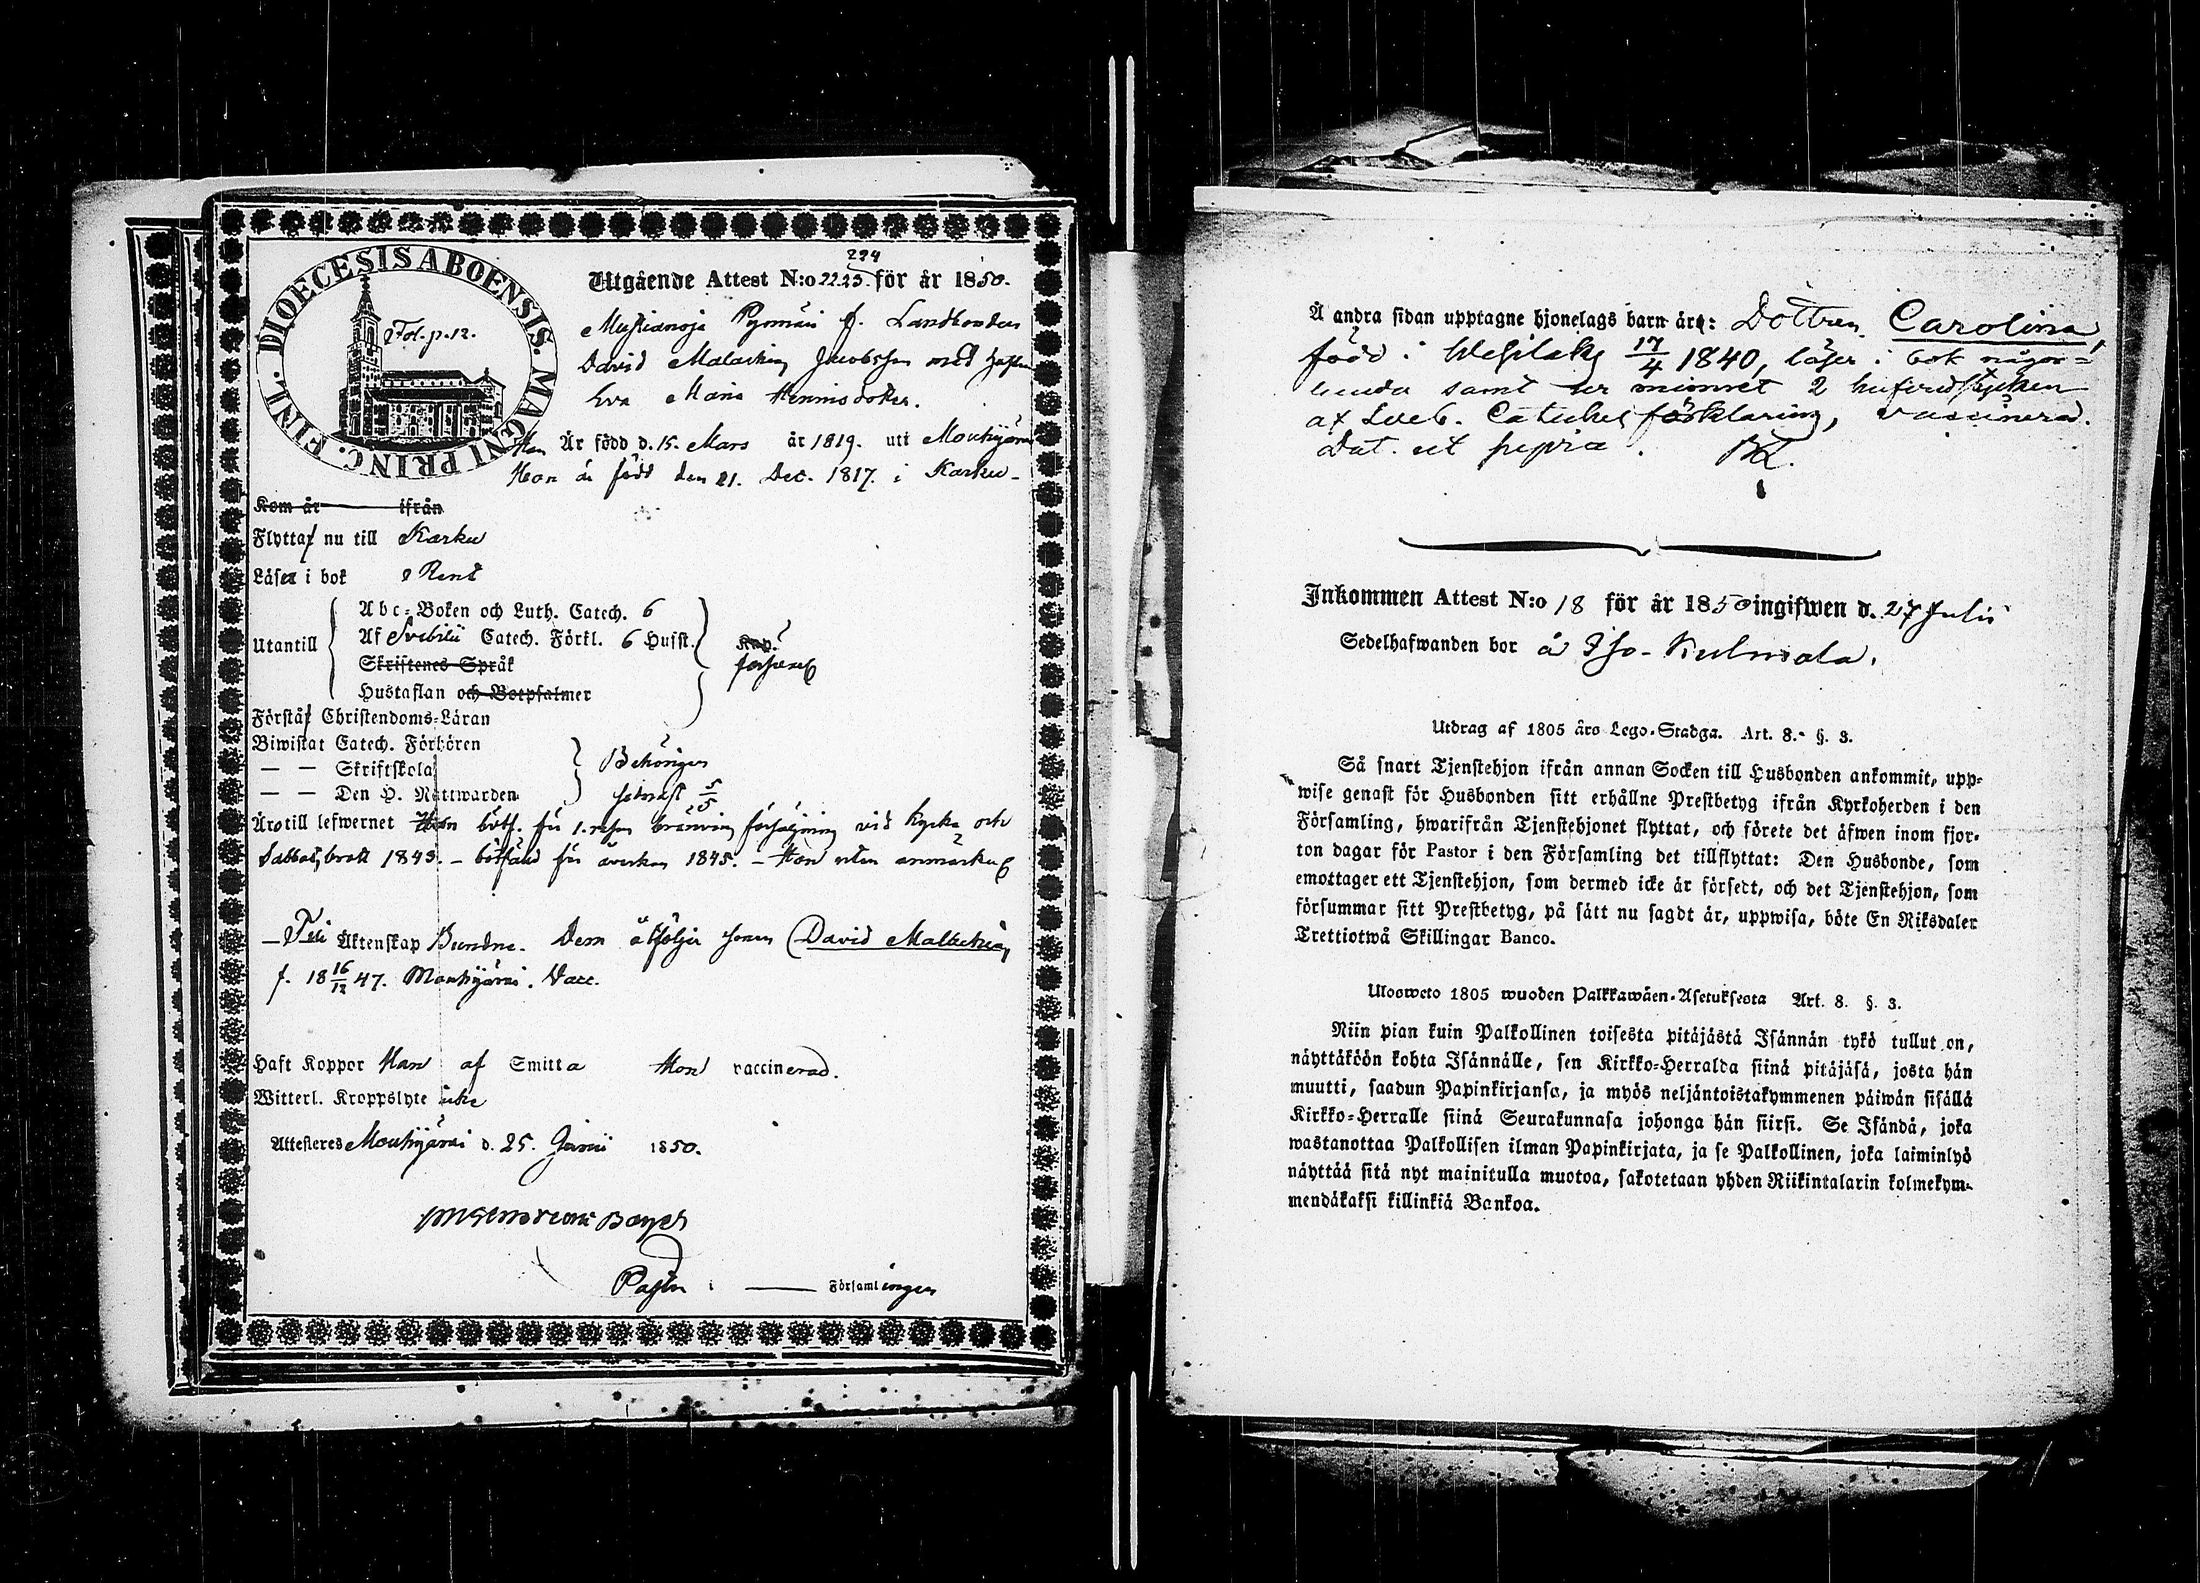 DIOECESIS ABOENSIS. MAGNI PRINC. FINL.
Fol. p. 12.
224
Utgående Attest N:o 2223. för år 1850.
Mustianoja Pynnäri f. Landbonden
David Malachias Jacobsson med hustru
Eva Maria Henricsdotter.
Han Är född d. 15. Mars år 1819. uti Mouhijärvi
Hon är född den 21. Dec. 1817. i Karku
Kom år ifrån
Flytta nu till Karku
Läser i bok Rent
Utantill
Abc-Boken och Luth. Catech. 6
Af Svebilii Catech. Förkl. 6 Hufst.
Skriftenes Språk
Hustaflan och Botpsalmer
Förstå Christendoms-Läran
Biwistat Catech. Förhören
— — Skriftskola
— — Den H. Nattwarden
Behörigen
senast 5/5
Äro till lefwernet Han bötf. för 1. resan bränvins försäljning vid kyrka och
Sabbatsbrott 1843. – bötfäld för åverkan 1845. – Hon utan anmärkn
– Till Äktenskap Bundne. Dem åtföljer sonen David Malachias,
f. 18 16/12 47. Mouhijärvi. Vacc.
Haft Koppor Han af Smitta Hon vaccinerad.
Witterl. Kroppslyte icke
Attesteres Mouhijärvi d. 25. Junii 1850.
Pastor i — Församlingen
Å andra sidan upptagne hjonelags barn äre: Dottren Carolina,
född i Wesilaks 17/4 1840, läser i bok någor-
lunda samt ur minnet 2 hufvudstycken
af Sveb. Catechei förklaring, vaccinerad.
Dat. ut supra.
Inkommen Attest N:o 18 för år 1850 ingifwen d. 27 Julii
Sedelhafwanden bor å Iso-Kulmala.
Utdrag af 1805 års Lego-Stadga. Art. 8. §. 3.
Så snart Tjenstehjon ifrån annan Socken till Husbonden ankommit, upp-
wise genast för Husbonden sitt erhållne Prestbetyg ifrån Kyrkoherden i den
Församling, hwarifrån Tjenstehjonet flyttat, och förete det äfwen inom fjor-
ton dagar för Pastor i den Församling det tillflyttat: Den Husbonde, som
emottager ett Tjenstehjon, som dermed icke är försedt, och det Tjenstehjon, som
försummar sitt Prestbetyg, på sätt nu sagdt är, uppwisa, böte En Riksdaler
Trettiotwå Skillingar Banco.
Ulosweto 1805 wuoden Palkkawäen-Asetuksesta Art. 8. §. 3.
Niin pian kuin Palkollinen toisesta pitäjästä Isännän tykö tullut on,
näyttäköön kohta Isännälle, sen Kirkko-Herralda siinä pitäjäsä, josta hän
muutti, saadun Papinkirjansa, ja myös neljäntoistakymmenen päiwän sisällä
Kirkko-Herralle siinä Seurakunnasa johonga hän siirsi. Se Isändä, joka
wastanottaa Palkollisen ilman Papinkirjata, ja se Palkollinen, joka laiminlyö
näyttää sitä nyt mainitulla muotoa, sakotetaan yhden Riikintalarin kolmekym-
mendäkaksi killinkiä Bankoa.